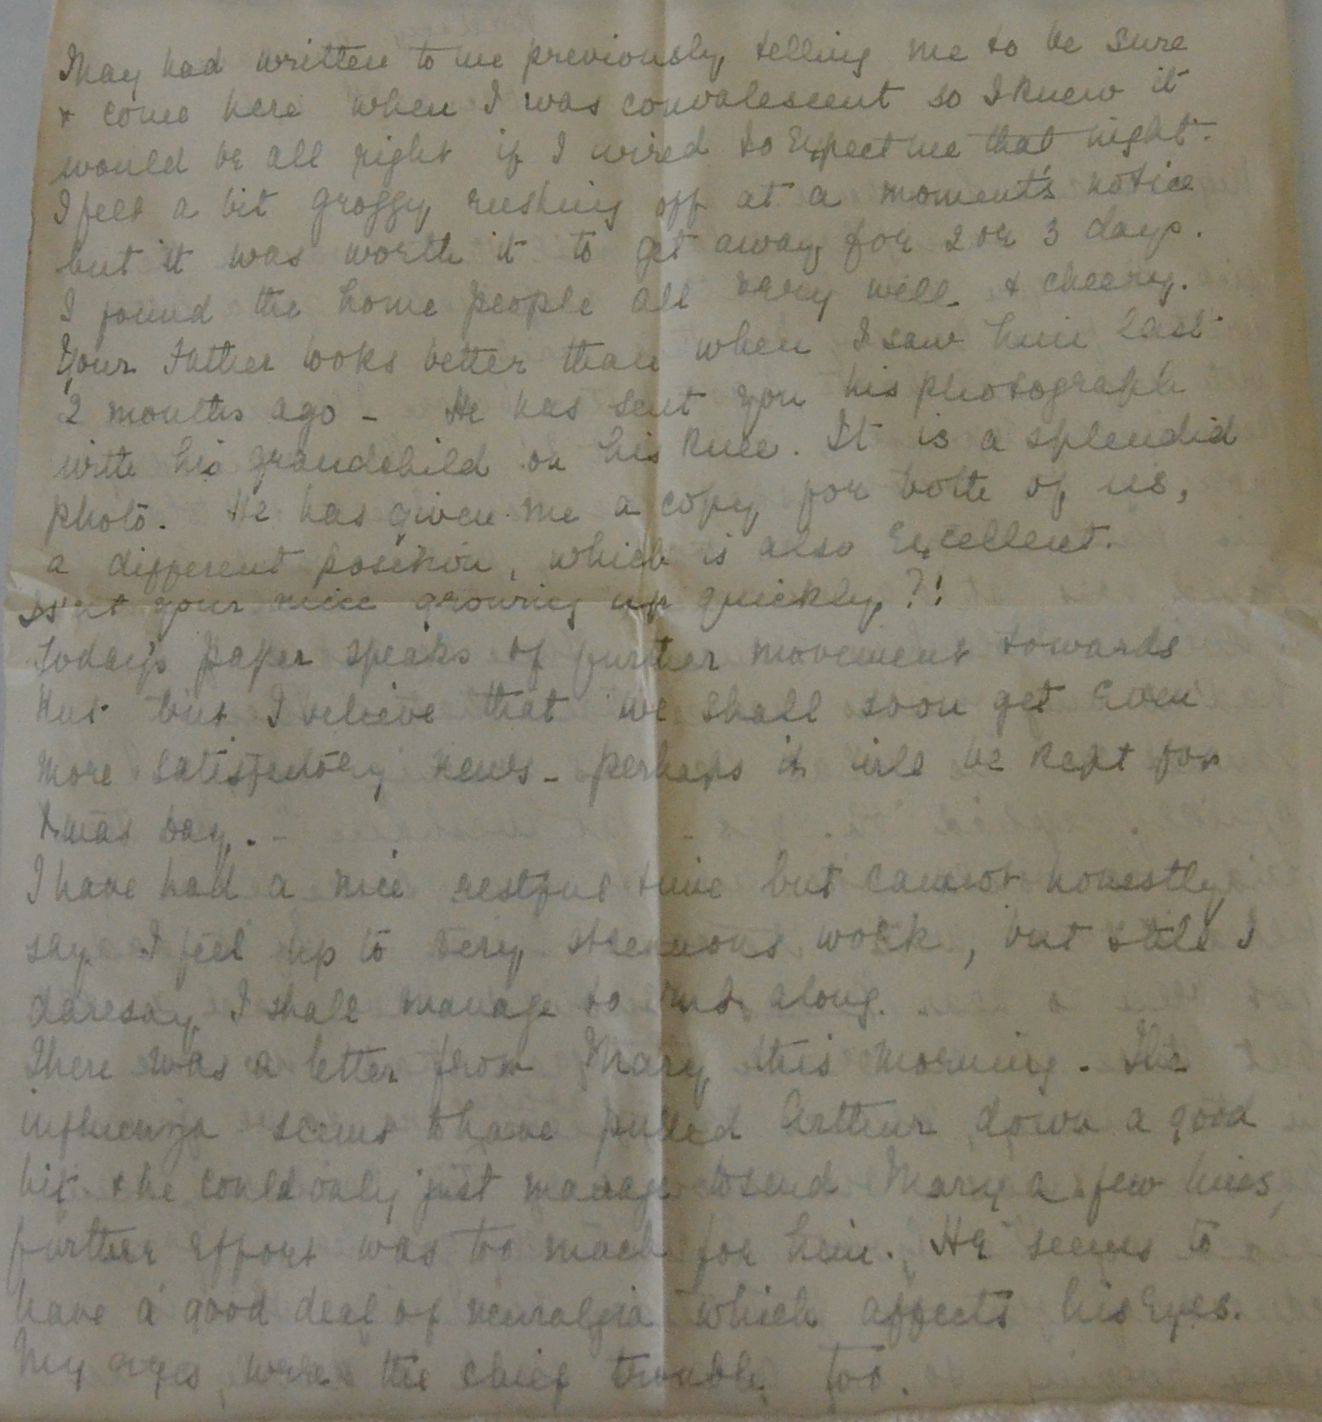 May had written to me previously telling me to be sure
& come here when I was convalescent so I knew it
would be all right if I wired to expect me that night.
I felt a bit groggy rushing off at a moment's notice
but it was worth it to get away for 2 or 3 days.
I found the home people all very well & cheery.
Your Father looks better than when I saw him last
2 months ago - He has sent you his photograph
with his grandchild on his knee. It is a splendid
photo. He has given me a copy for both of us,
a different position, which is also excellent.
Is'nt your niece growing up quickly?!
Today's paper speaks of further movement towards
Kut but I believe that we shall soon get even
more satisfactory news - perhaps it will be kept for
Xmas Day. -
I have had a nice restful time but cannot honestly
say I feel up to very strenuous work, but still I
daresay I shall manage to rub along.
There was a letter from Mary this morning. The
influenza seems to have pulled Arthur down a good
bit & he could only just manage to send Mary a few lines,
further effort was too much for him. He seems to
have a good deal of neuralgia which affects his eyes.
My eyes were the chief trouble too.